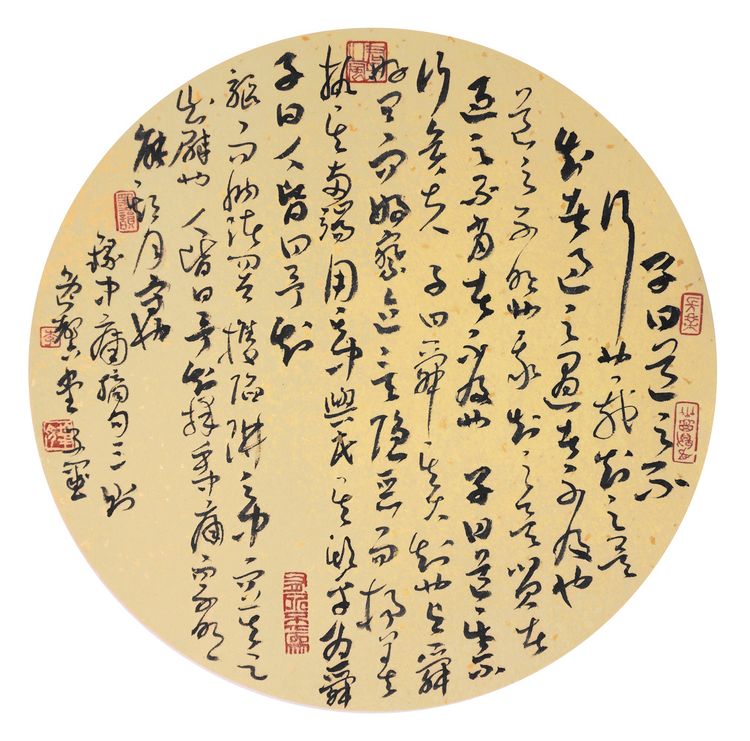 子曰道之不
行也我知之矣
知者過之愚者不及也
道之不明也我知之矣賢者
過之不肖者不及也 子曰道其不
行矣夫 子曰舜其大知也與舜
好問而好察邇言隱惡而揚善
執其兩端用其中與民其斯以為舜
子曰人皆曰予知
驅而納諸罟擭陷阱之中而莫之
知辟也人皆曰予知擇乎中庸而不
能期月守也
錄中庸摘句三則